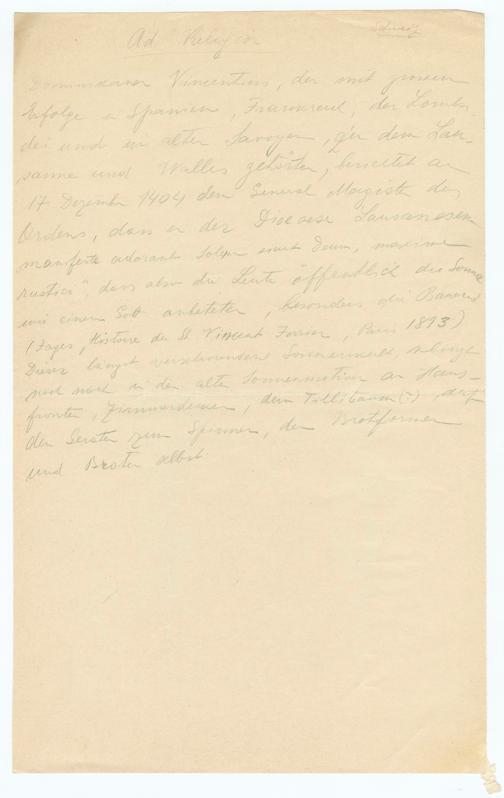 Schweiz
Ad Religion
Dominikaner Vincentius, der mit grossem
Erfolge in Spanien, Frankreich, der Lombar-
dei und in alter Savoyen, zu dem Lau-
sanne und Wallis gehörten, berichtet am
17 Dezember 1404 dem General Magister des
Ordens, dass in der Diocoese Lausanesem
"manifeste adorant Solem sicut Deum, maxime
rustici", dass also die Leute öffentlich die Sonne
wie einen Gott anbeteten, besonders die Bauern
(Fages, Histoire de St Vincent Ferrier, Paris 1893)
Dieser längst verschwundene Sonnenkult,
noch nach in den alten Sonnenmotiven an Haus-
fronten, Zimmerdecken, dem Tellibaum(?), auf
den Geräten zum Spinnen, den Brotformen
und Broten selbst